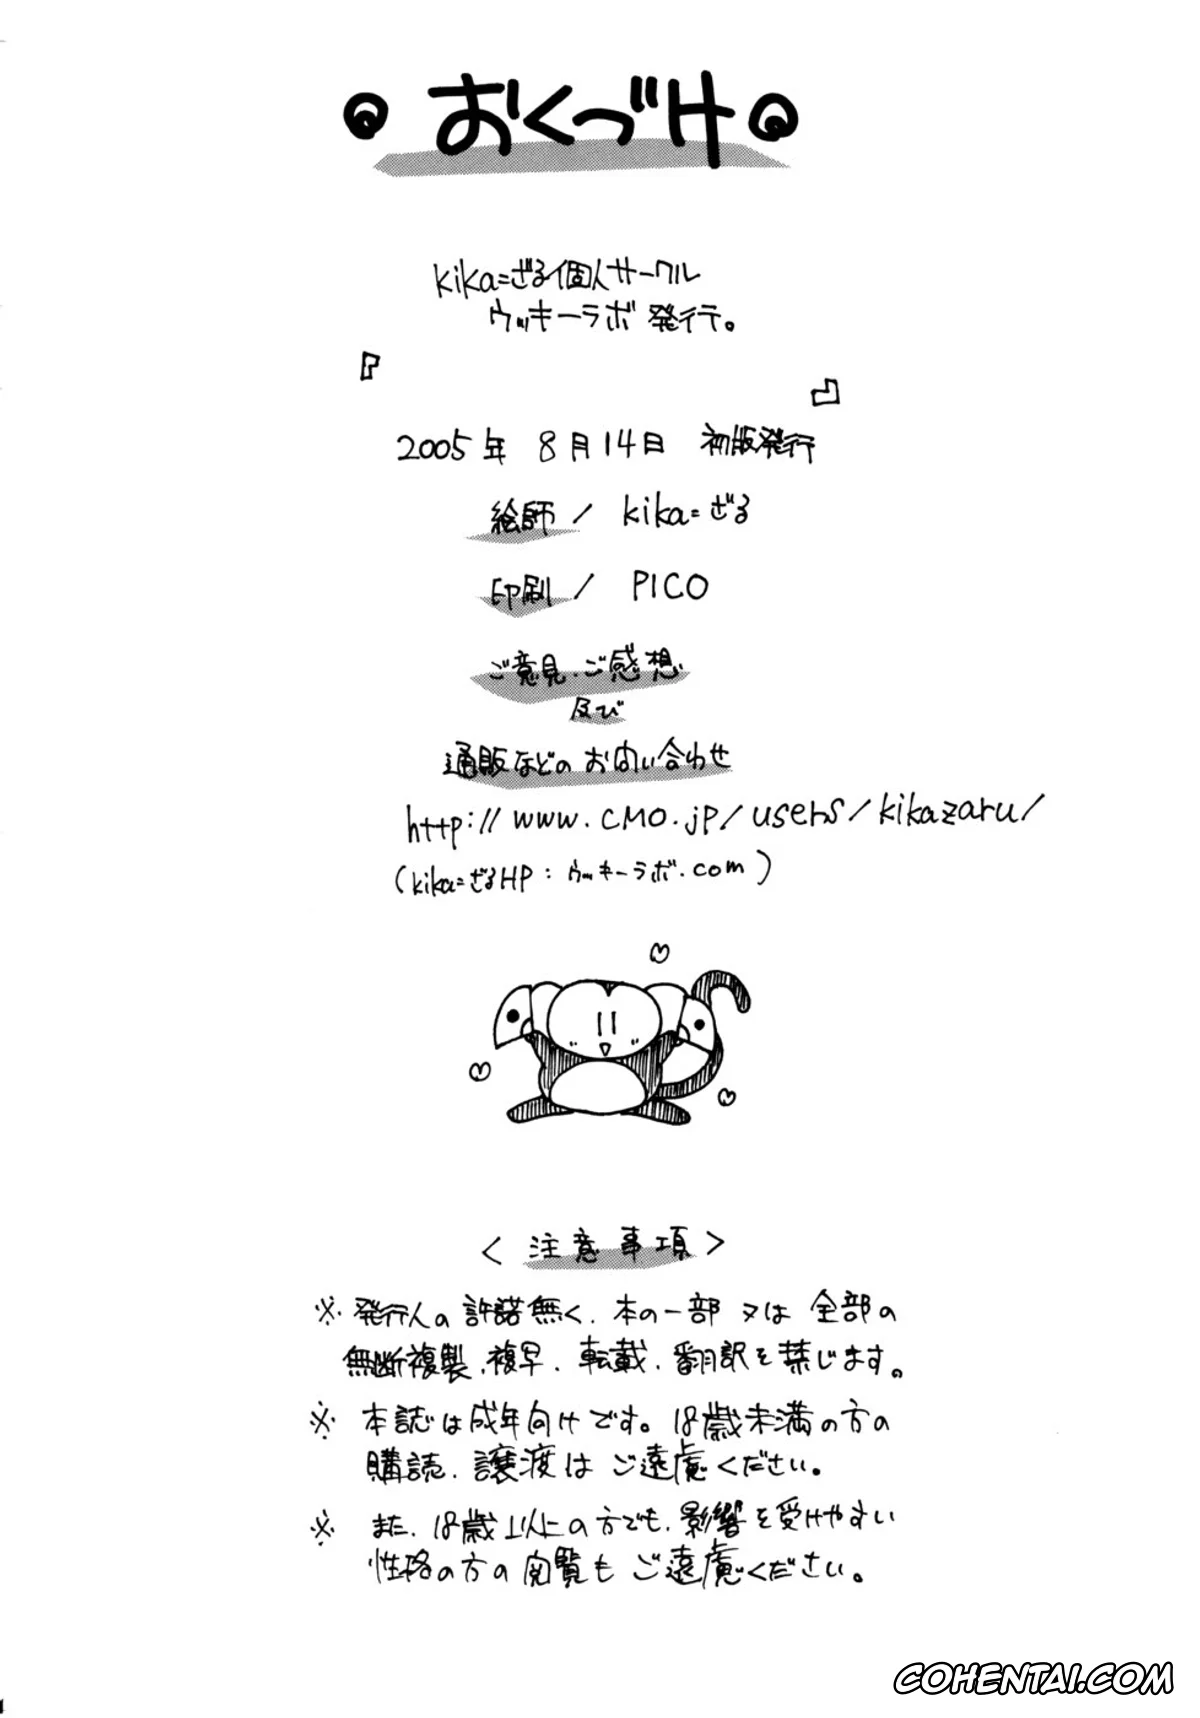 おくづけ
kika=ざる個人サークル
ウッキーラボ 発行。
『
』
2005年 8月14日 初版発行
絵師 / kika=ざる
印刷 / PICO
ご意見.ご感想
及び
通販などの お問い合わせ
http://www.cmo.jp/users/kikazaru/
(kika=ざるHP: ウッキーラボ.com)
<注意事項>
※発行人の許諾無く.本の一部 又は 全部の
無断複製.複写.転載.翻訳を禁じます。
※ 本誌は成年向けです。18歳未満の方の
購読.譲渡は ご遠慮ください。
※ また、18歳以上の方でも、影響を受けやすい
性格の方の閲覧も ご遠慮ください。
COHENTAI.COM